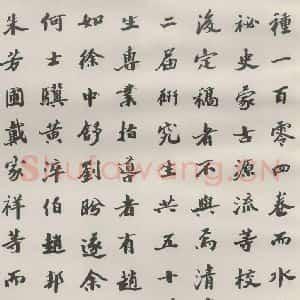 種一百零四卷而水
祕史蒙古源流等校
後定稿者不與焉清
二届研究生共五十
生專業指導者有趙
如徐中舒劉盼遂余
何士驥黃淬伯趙邦
朱芳圃戴家祥等而
Shufawang.CN